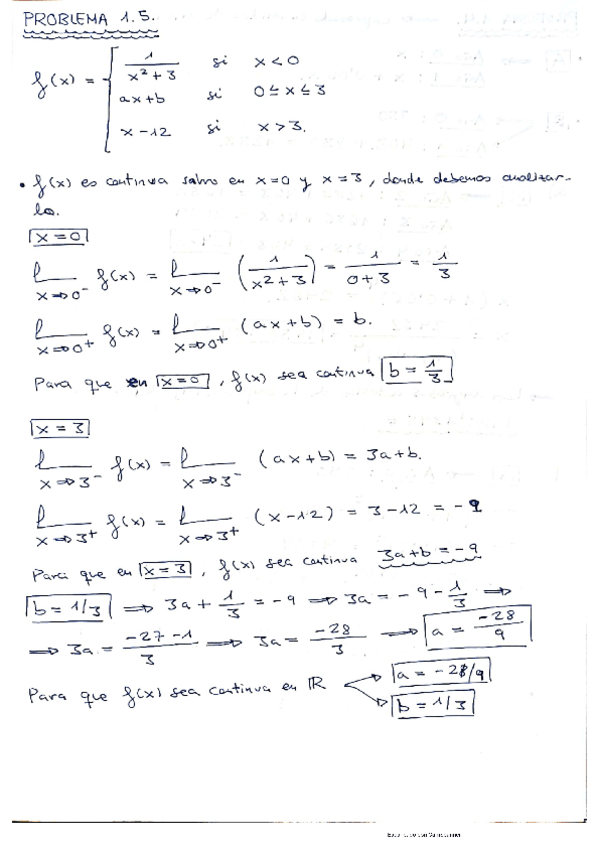 PROBLEMA 1.5.
f(x) = { 1/(x²+3) si x<0
ax+b si 0≤x≤3
x-12 si x>3.
• f(x) es continua salvo en x=0 y x=3, donde debemos analizar-
lo.
x=0
l x⇒0⁻ f(x) = l x⇒0⁻ (1/(x²+3)) = 1/(0+3) = 1/3
l x⇒0⁺ f(x) = l x⇒0⁺ (ax+b) = b.
Para que en x=0, f(x) sea continua b = 1/3
x=3
l x⇒3⁻ f(x) = l x⇒3⁻ (ax+b) = 3a+b.
l x⇒3⁺ f(x) = l x⇒3⁺ (x-12) = 3-12 = -9
Para que en x=3, f(x) sea continua 3a+b = -9
b = 1/3 ⇒ 3a + 1/3 = -9 ⇒ 3a = -9 - 1/3 ⇒
⇒ 3a = (-27-1)/3 ⇒ 3a = -28/3 ⇒ a = -28/9
Para que f(x) sea continua en ℝ a = -28/9
b = 1/3